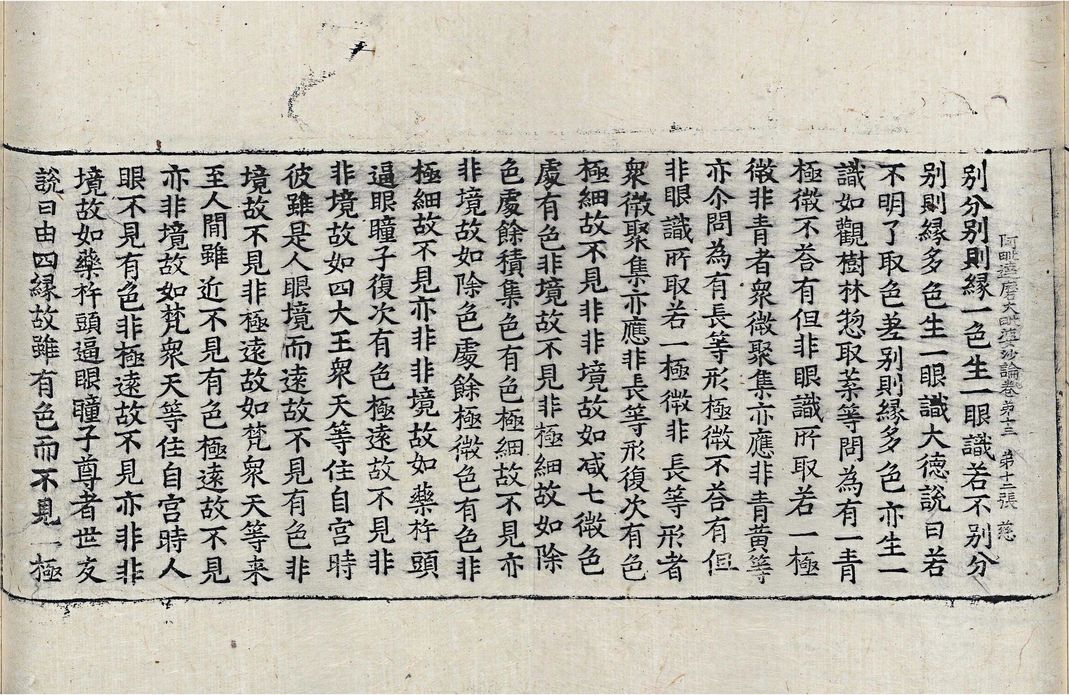 阿毗達磨大毗婆沙論卷第十三 第十二張 慈
別分别則緣一色生一眼識若不别分
别則緣多色生一眼識大德說曰若
不明了取色差別則緣多色亦生一
識如觀樹林惣取葉等問為有一青
極微不荅有但非眼識所取若一極
微非青者衆微聚集亦應非青黃等
亦尒問為有長等形極微不荅有但
非眼識所取若一極微非長等形者
衆微聚集亦應非長等形復次有色
極細故不見非非境故如減七微色
處有色非境故不見非極細故如除
色處餘積集色有色極細故不見亦
非境故如除色處餘極微色有色非
極細故不見亦非非境故如藥杵頭
逼眼瞳子復次有色極遠故不見非
非境故如四大王衆天等住自宮時
彼雖是人眼境而遠故不見有色非
境故不見非極遠故如梵衆天等来
至人間雖近不見有色極遠故不見
亦非境故如梵衆天等住自宮時人
眼不見有色非極遠故不見亦非非
境故如藥杵頭逼眼瞳子尊者世友
說曰由四緣故雖有色而不見一極